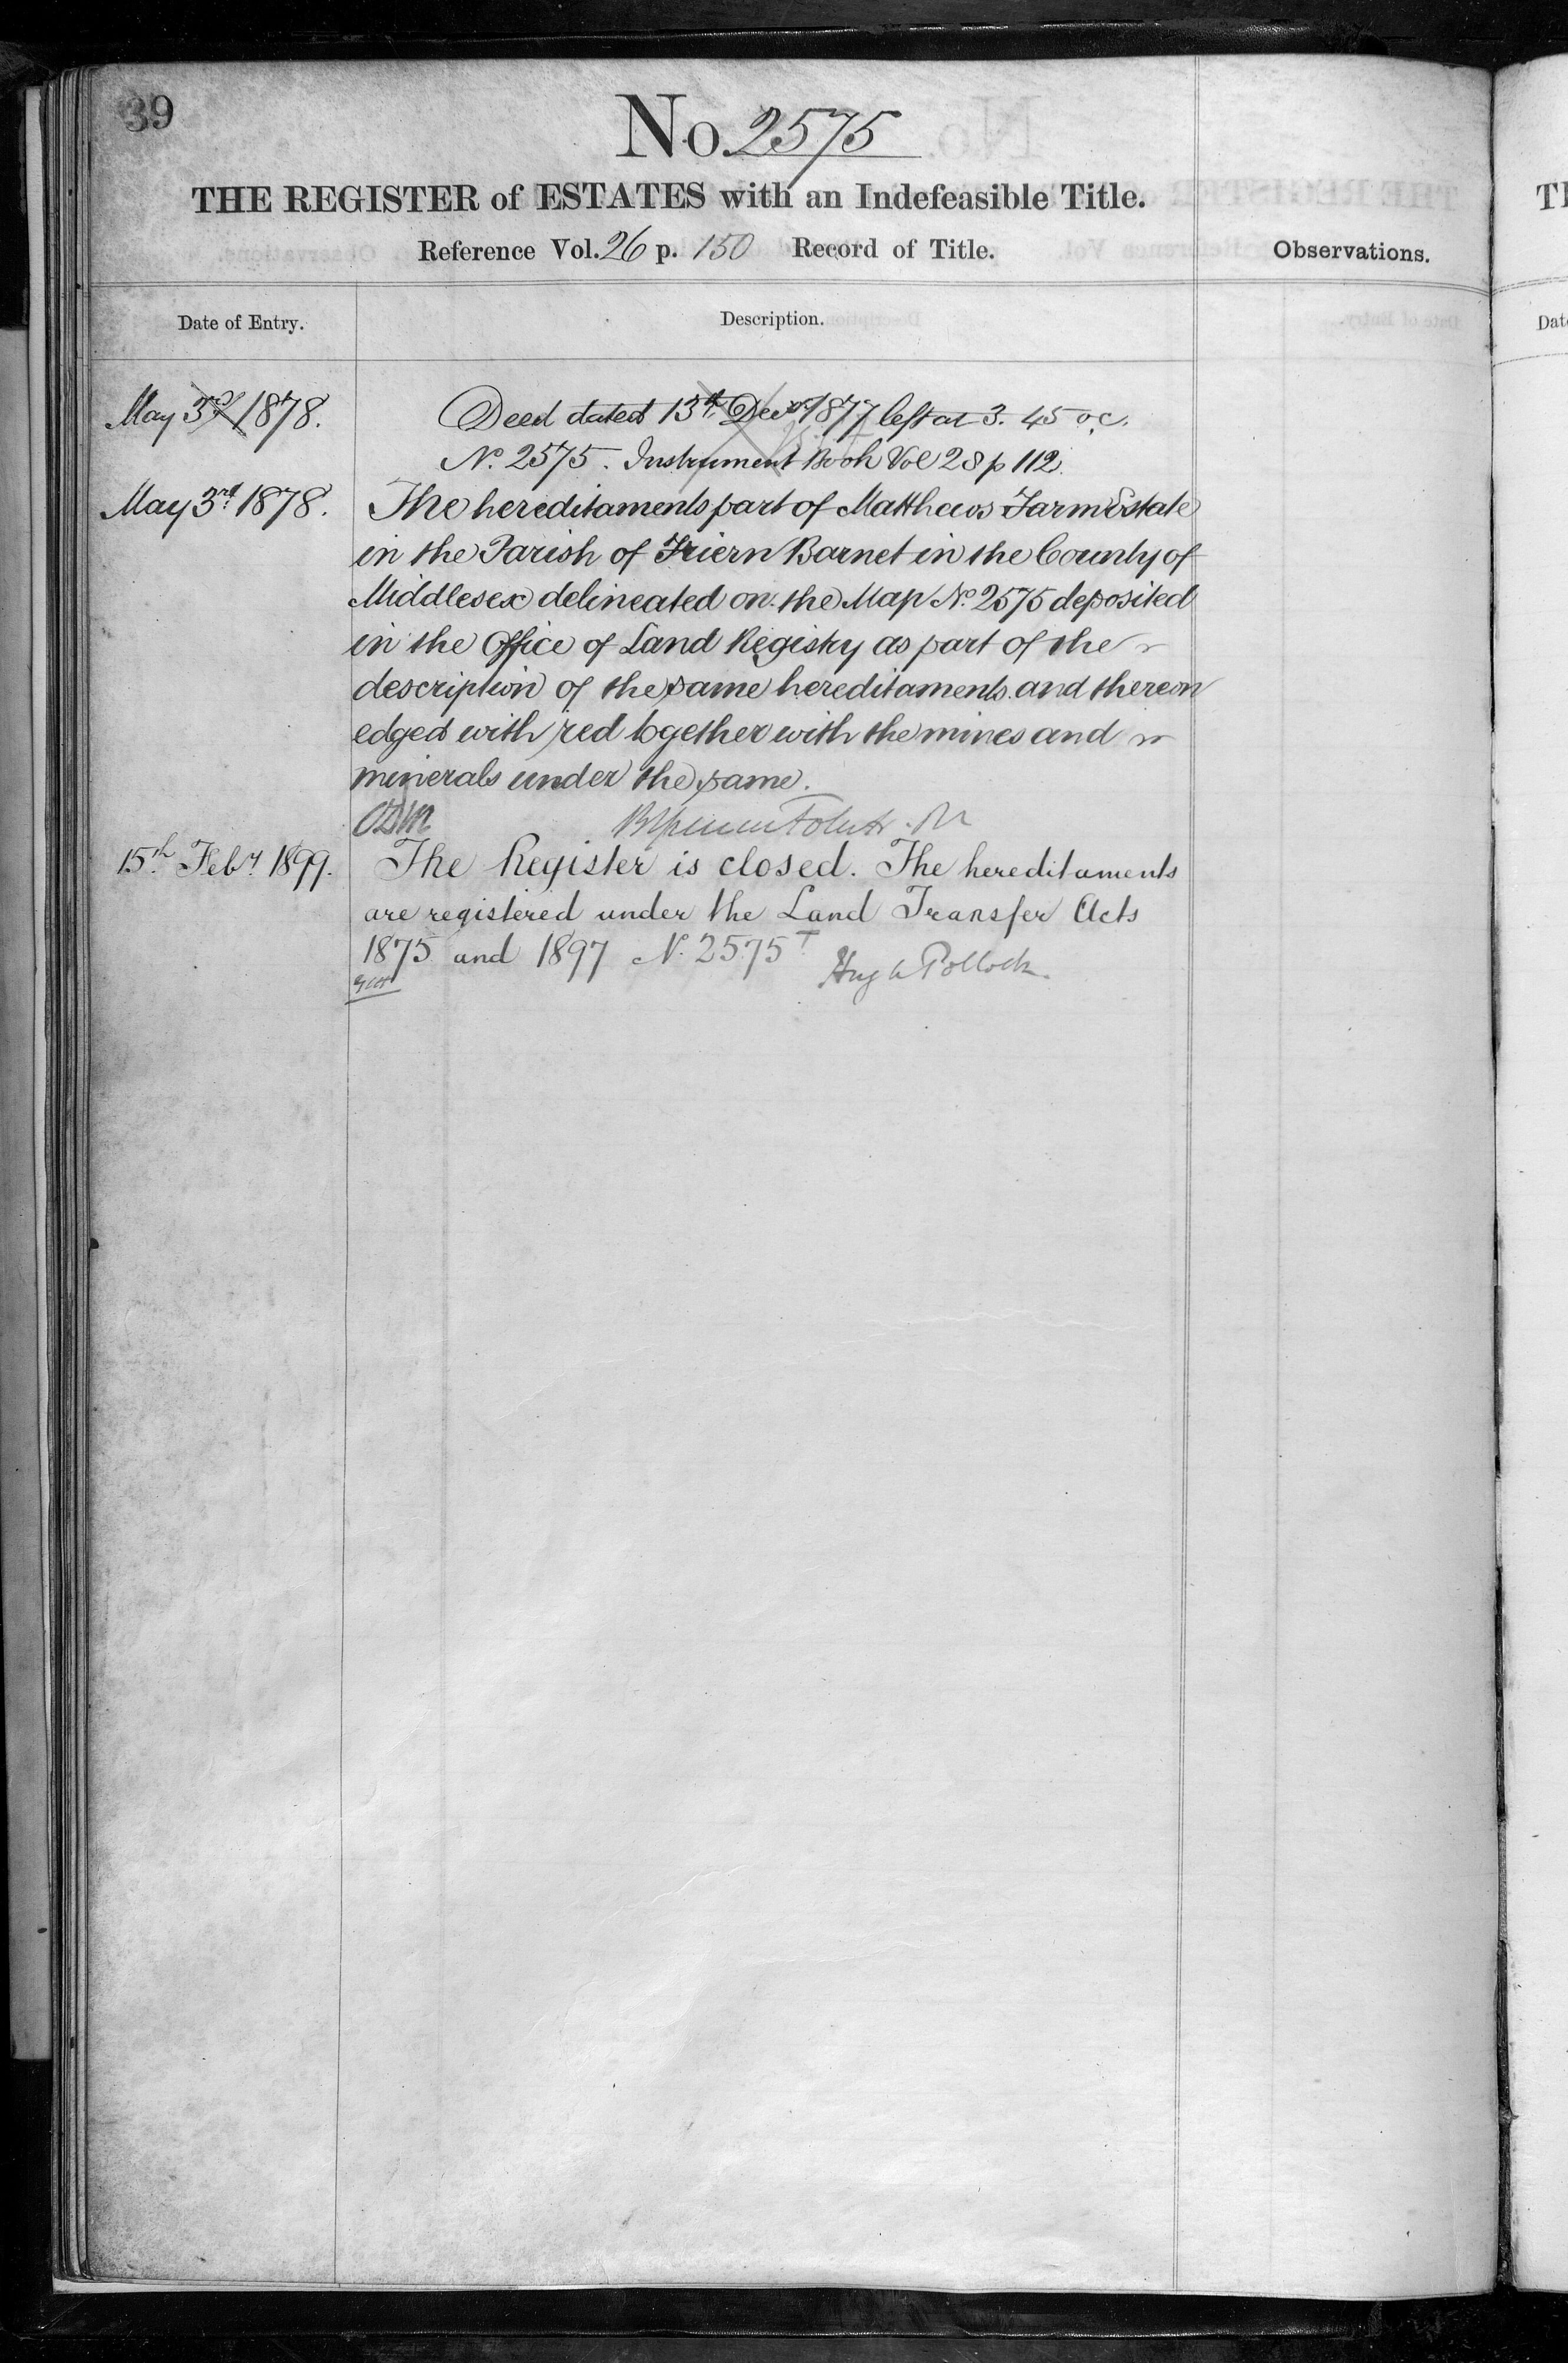 39
No. 2575
THE REGISTER of ESTATES with an Indefeasible Title.
Reference Vol. 26 p. 150 Record of Title.
Observations.
Date of Entry.
Description.
May 3rd 1878.
Deed dated 13th Decr 1877 left at 3.45 oc.
No. 2575. Instrument Book Vol 28 p 112.
May 3rd 1878.
The hereditaments part of Matthews Farm Estate
in the Parish of Friern Barnet in the County of
Middlesex delineated on the Map No. 2575 deposited
in the Office of Land Registry as part of the
description of the same hereditaments and thereon
edged with red together with the mines and
minerals under the same.
15th Feby 1899.
The Register is closed. The hereditaments
are registered under the Land Transfer Acts
1875 and 1897 No. 2575T
Hugh Pollock.